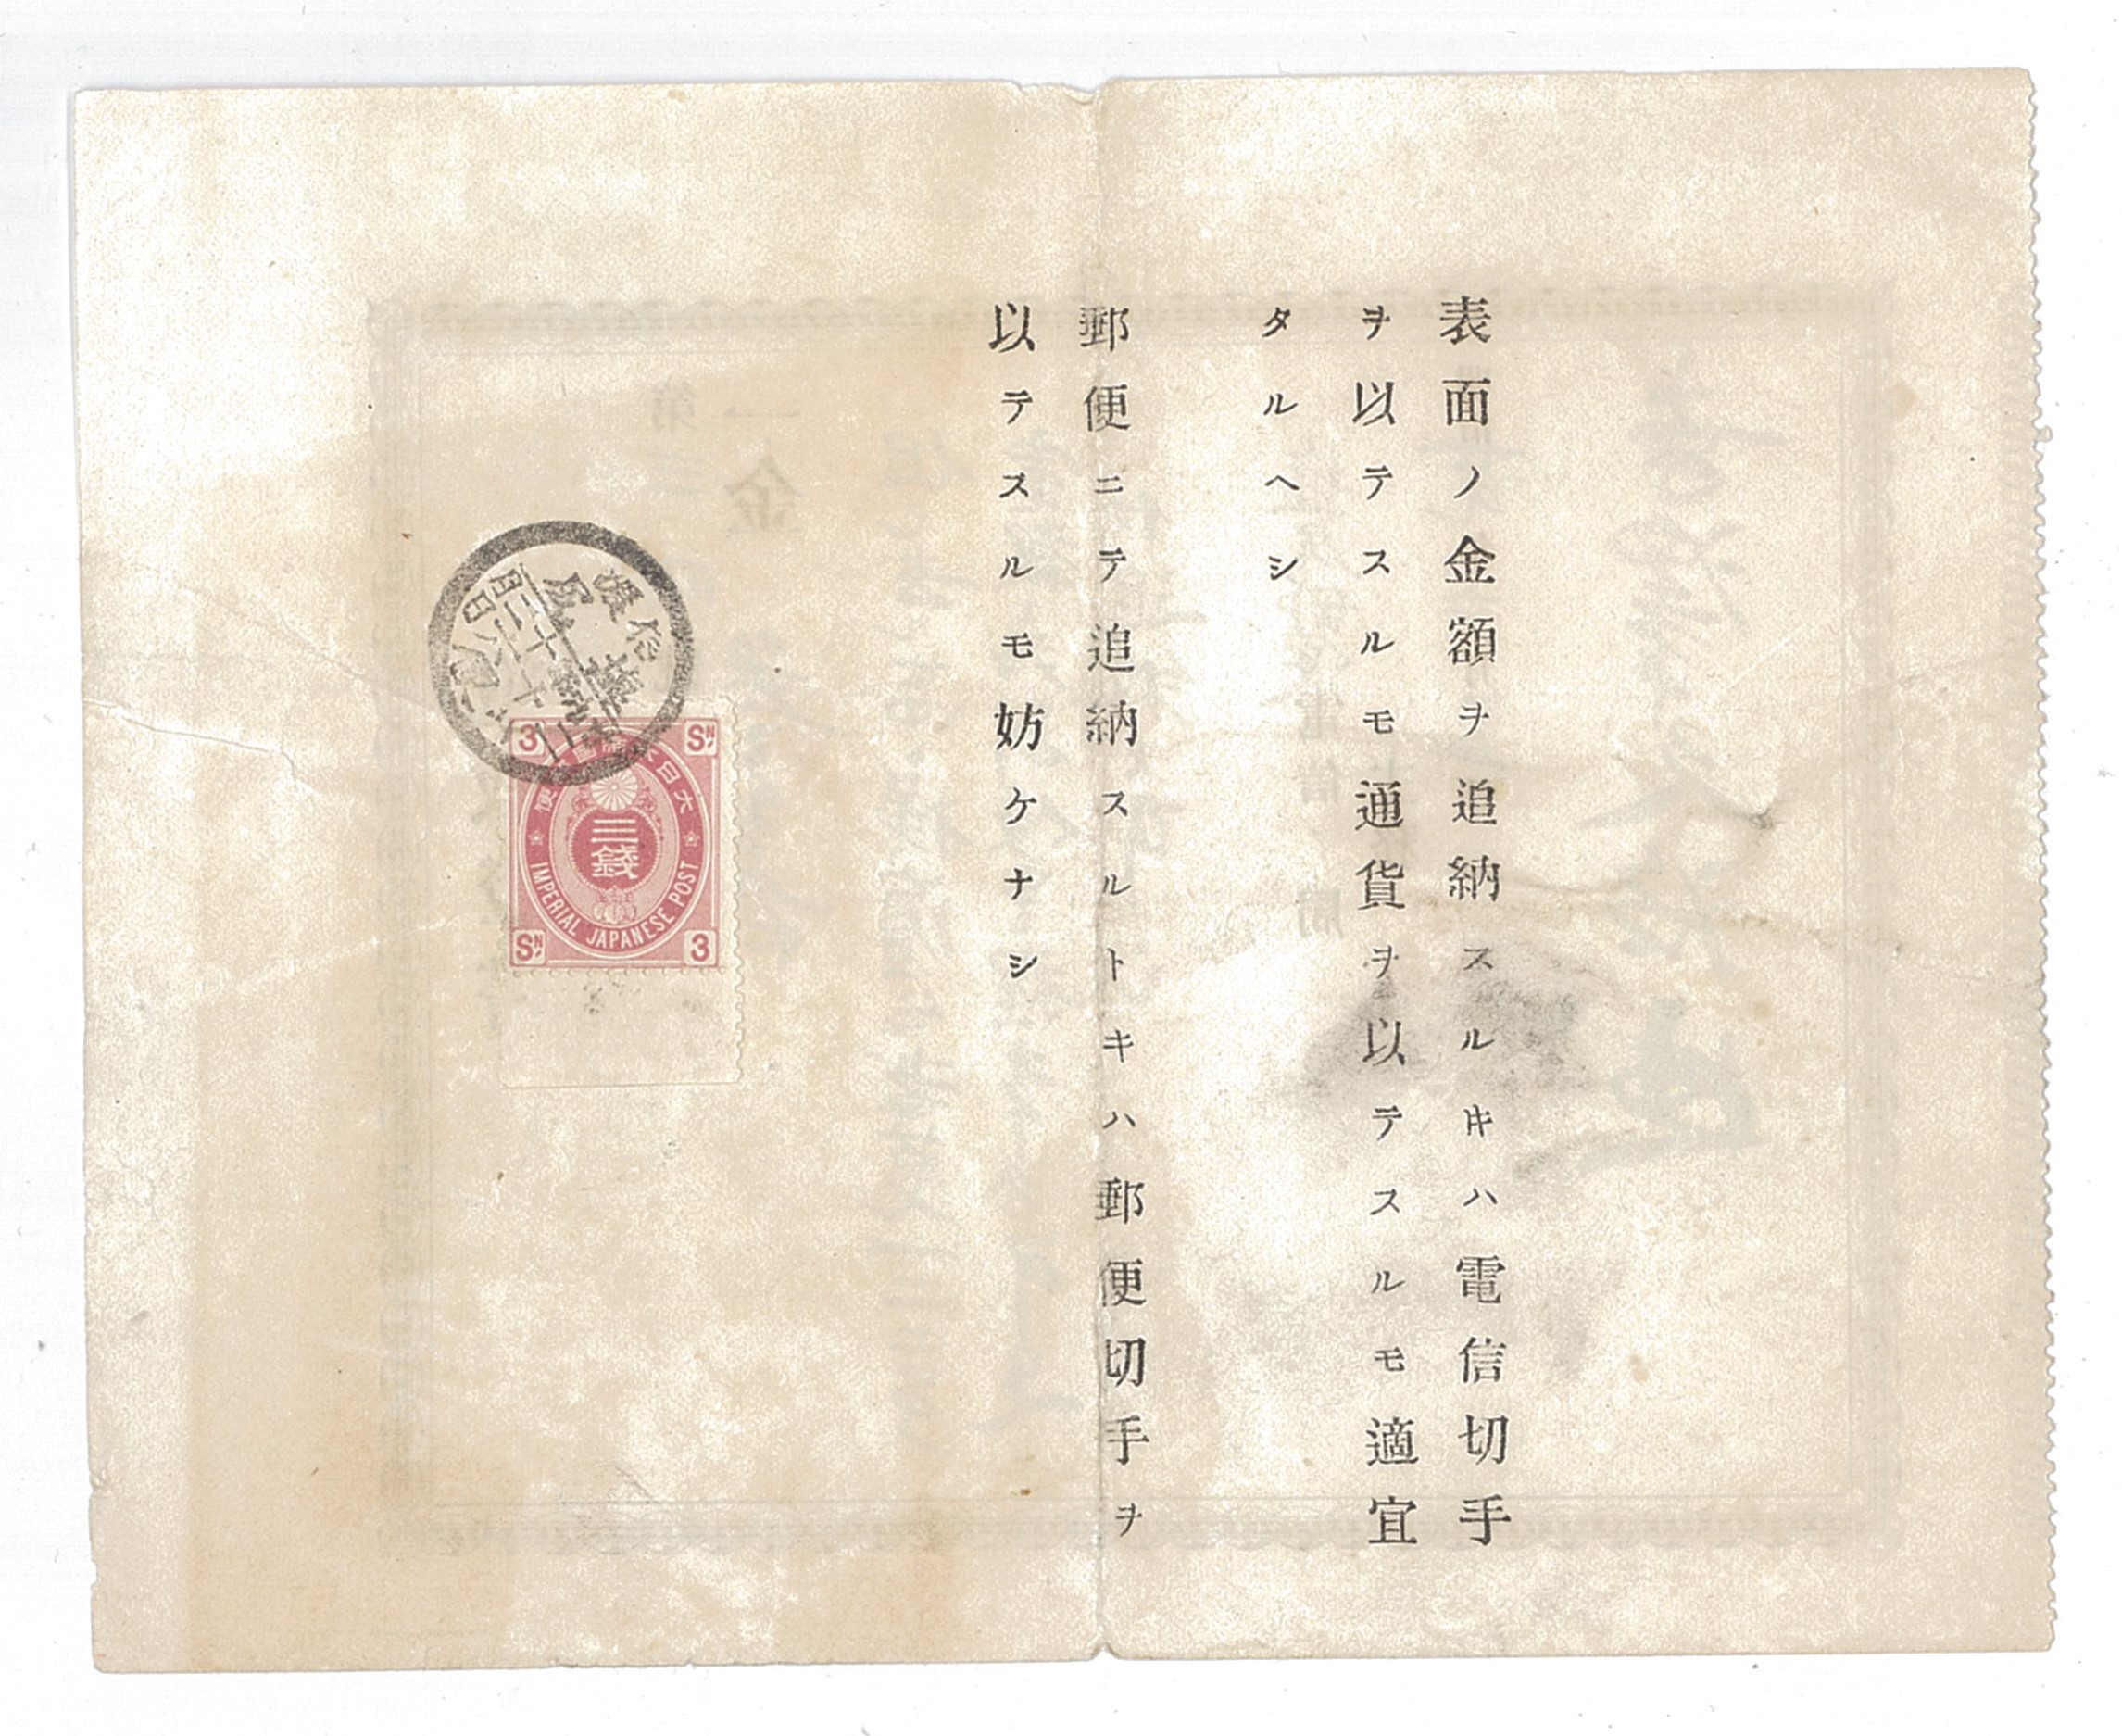 表面ノ金額ヲ追納スルキハ電信切手
ヲ以テスルモ通貨ヲ以テスルモ適宜
タルヘシ
郵便ニテ追納スルトキハ郵便切手ヲ
以テスルモ妨ケナシ
3 SN
大日
便
三錢
IMPERIAL JAPANESE POST
SN 3